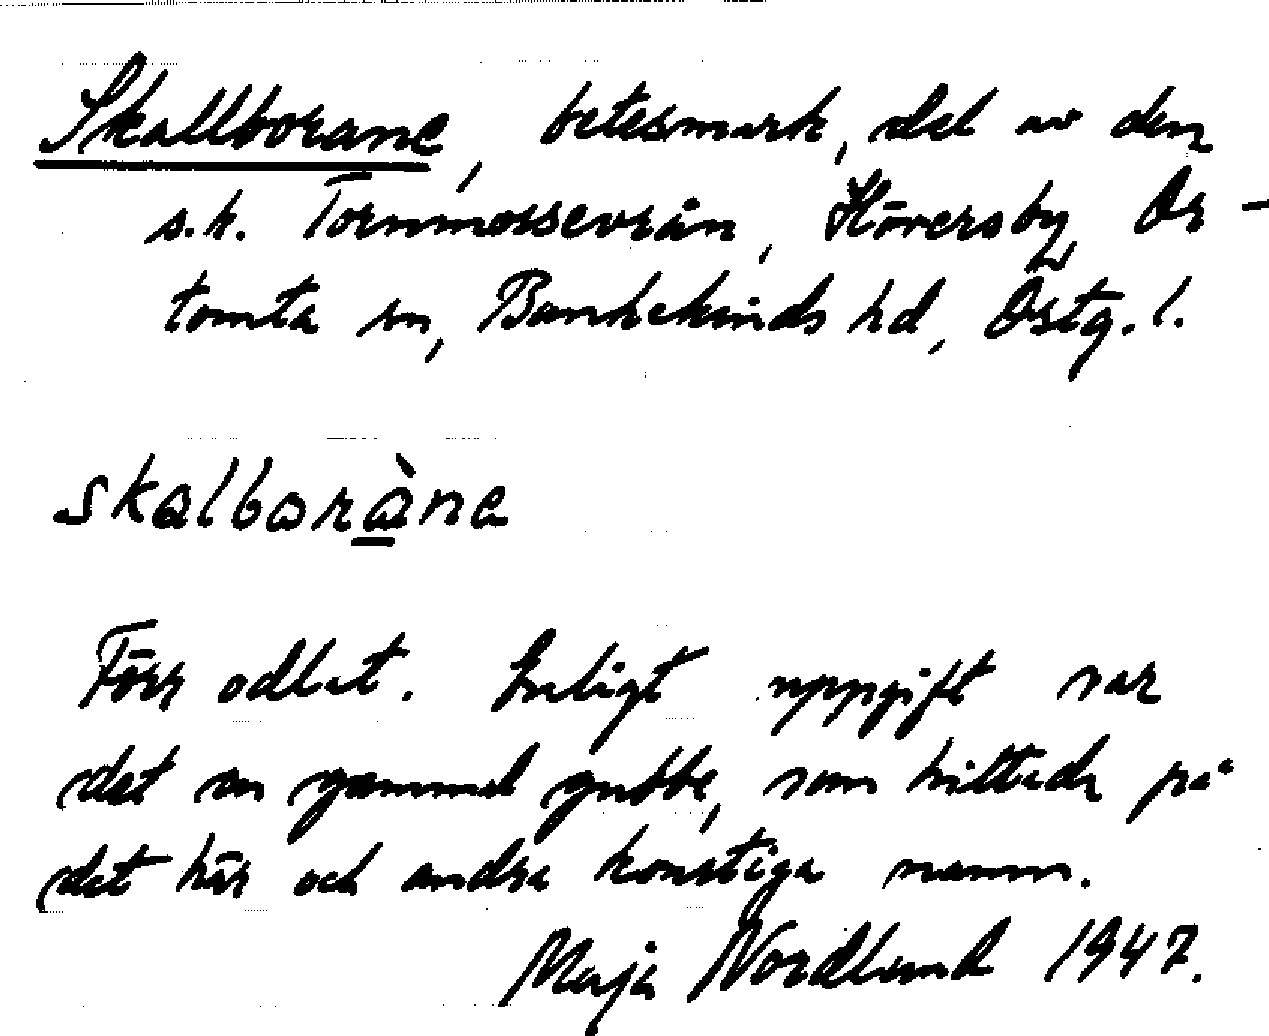 Skallborane, betesmark, del av den
s.k. Tornmossevrån, Höversby, Ör-
tomta sn, Bankekinds hd, Östg. l.
skalboràne
Förr odlat. Enligt uppgift var
det en gammal gubbe, som hittade på
det här och andra konstiga namn.
Maja Nordlund 1947.